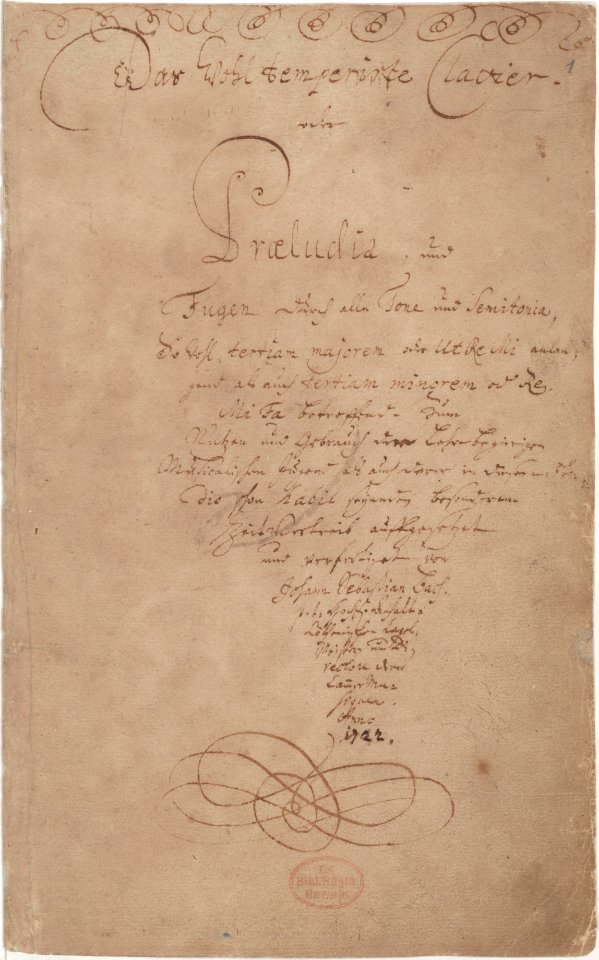 Das Wohl temperirte Clavier.
1
oder
Præludia, und
Fugen durch alle Tone und Semitonia,
So wohl tertiam majorem oder Ut Re Mi anlan,
gend, als auch tertiam minorem oder Re
Mi Fa betreffend. Zum
Nutzen und Gebrauch der Lehr-begierigen
Musicalischen Jugend, als auch derer in diesem studio
schon habil seyenden besonderem
ZeitVertreib auffgesetzet
und verfertiget von
Johann Sebastian Bach.
p. t. HochFürstl. Anhalt.
Cöthenischen Capel-
Meistern und Di-
rectore derer
Cammer Mu-
siquen.
Anno
1722.
Ex
Biblioth. Regia
Berolin.